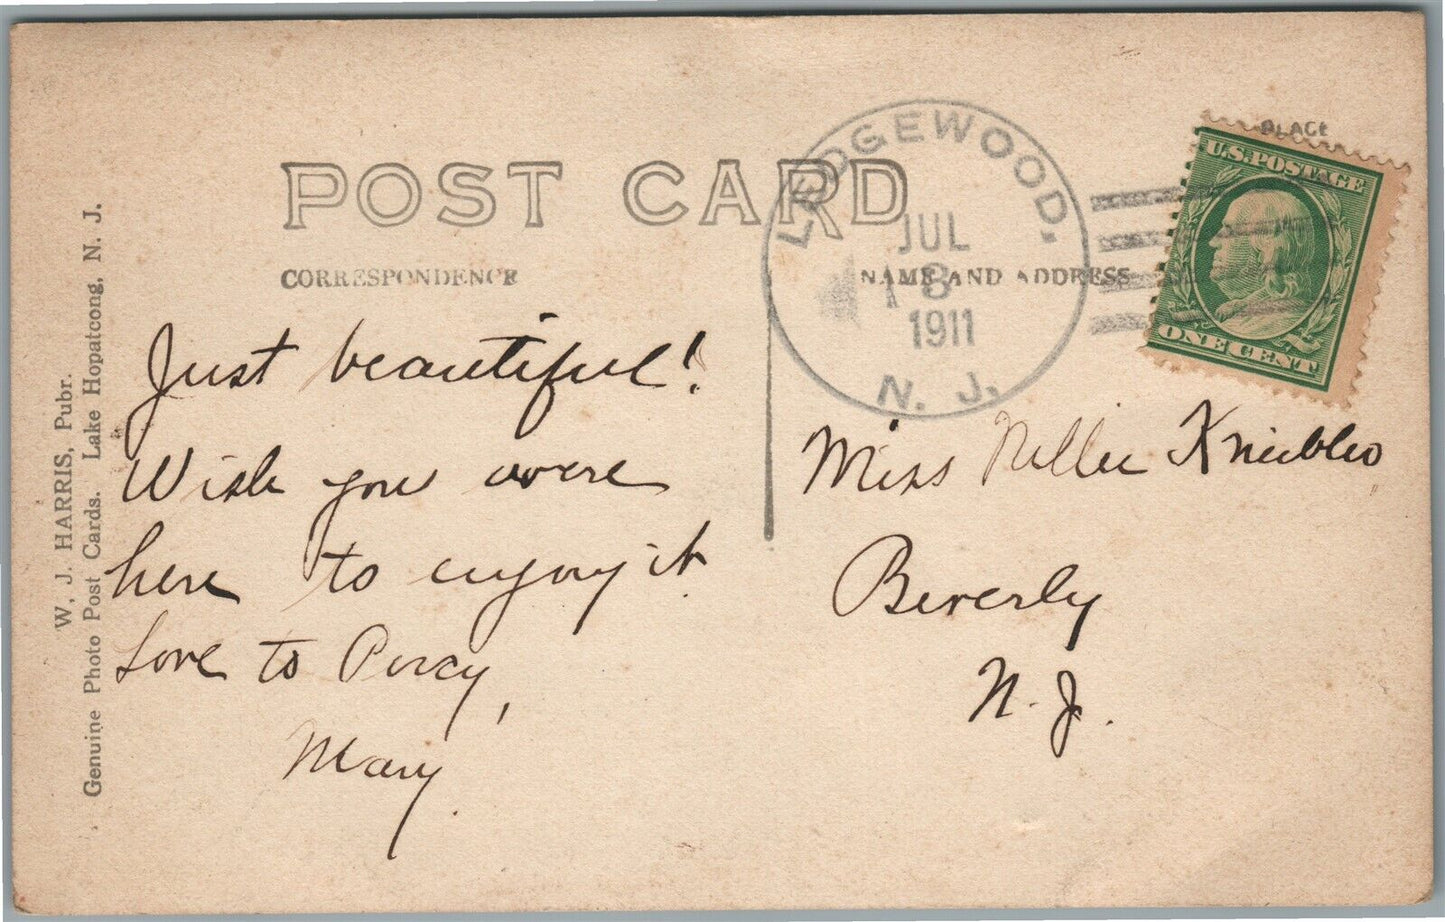 POST CARD
CORRESPONDENCE
NAME AND ADDRESS
PLACE
LEDGEWOOD.
JUL
8
1911
N. J.
U.S. POSTAGE
ONE CENT
W. J. HARRIS, Pubr.
Genuine Photo Post Cards. Lake Hopatcong, N. J.
Just beautiful!
Wish you were
here to enjoy it
Love to Percy,
Mary.
Miss Nellie
Beverly
N. J.